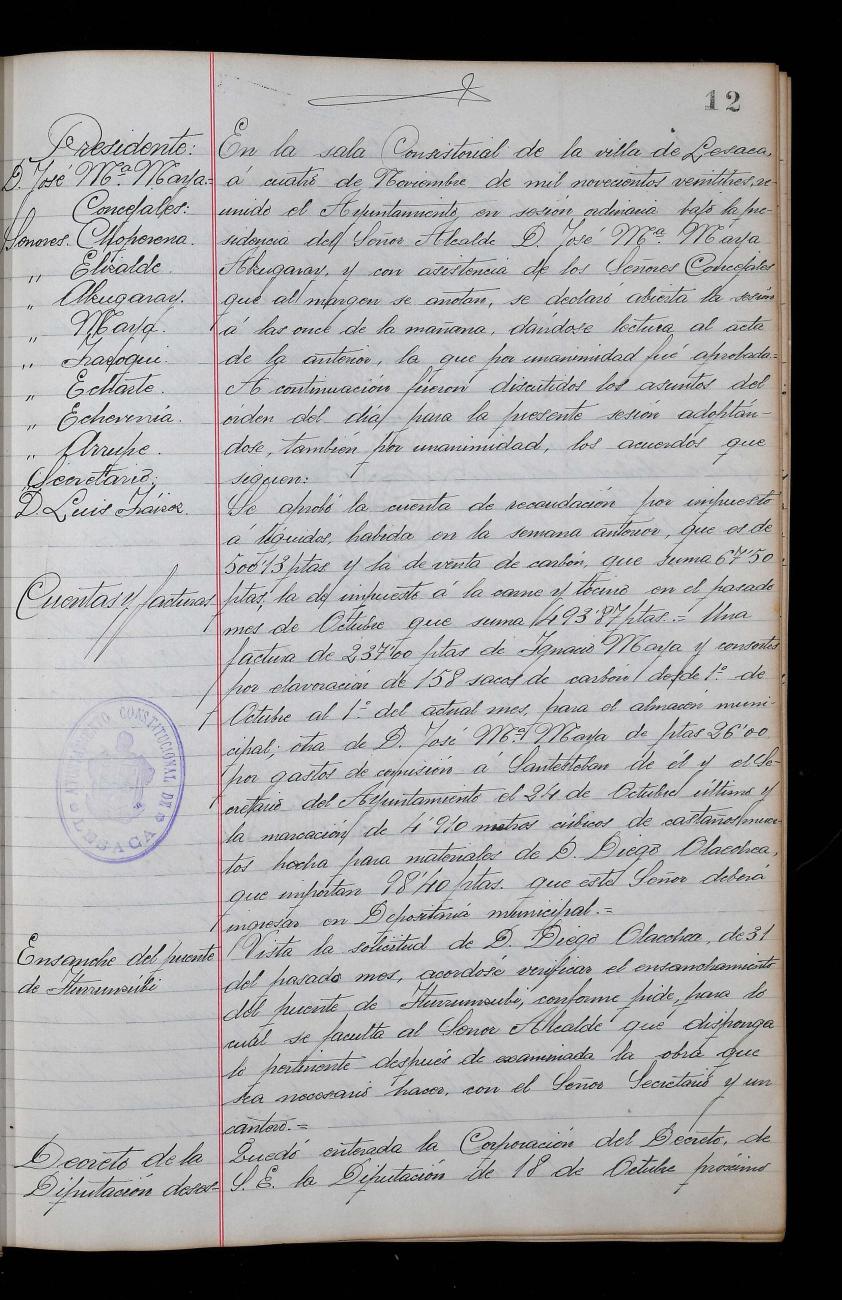 12
Presidente:
D. José Mª Maya.=
Concejales:
Señores. Choperena.
„ Elizalde.
„ Alzugaray.
„ Maya.
„ Irazoqui.
„ Echarte.
„ Echeverria.
„ Arrupe.
Secretario:
D Luis Iráizoz.
Cuentas y facturas
AYUNTAMIENTO CONSTITUCIONAL DE
LESACA
Ensanche del puente
de Iturrunzubi
Decreto de la
Diputación deses-
En la sala Consistorial de la villa de Lesaca,
á cuatro de Noviembre de mil novecientos veintitres, re-
unido el Ayuntamiento, en sesión ordinaria bajo la pre-
sidencia del Señor Alcalde D. José Mª Maya
Alzugaray, y con asistencia de los Señores Concejales
que al margen se anotan, se declaró abierta la sesión
á las once de la mañana, dándose lectura al acta
de la anterior, la que por unanimidad fué aprobada=
A continuación fueron discutidos los asuntos del
orden del dia para la presente sesión adoptán-
dose, también por unanimidad, los acuerdos que
siguen:
Se aprobó la cuenta de recaudación por impuesto
á líquidos, habida en la semana anterior, que es de
500'13 ptas y la de venta de carbón, que suma 67'50
ptas, la de impuesto á la carne y tocino en el pasado
mes de Octubre que suma 493'87 ptas.= Una
factura de 237'00 ptas de Ignacio Maya y consortes
por elavoración de 158 sacos de carbón desde 1º de
Octubre al 1º del actual mes, para el almacén muni-
cipal; otra de D. José Mª Maya de ptas 26'00
por gastos de comisión á Santesteban de él y el Se-
cretario del Ayuntamiento el 24 de Octubre último y
la marcación de 4'910 metros cúbicos de castaños muer-
tos hecha para materiales de D. Diego Olacohea,
que importan 98'40 ptas. que este Señor deberá
ingresar en Depositaria municipal.=
Vista la solicitud de D. Diego Olacohea, de 31
del pasado mes, acordose verificar el ensanchamiento
del puente de Iturrunzubi, conforme pide, para lo
cual se faculta al Señor Alcalde que disponga
lo pertinente después de examinada la obra que
sea necesario hacer, con el Señor Secretario y un
cantero.=
Quedó enterada la Corporación del Decreto, de
S. E. la Diputación de 18 de Octubre próximo